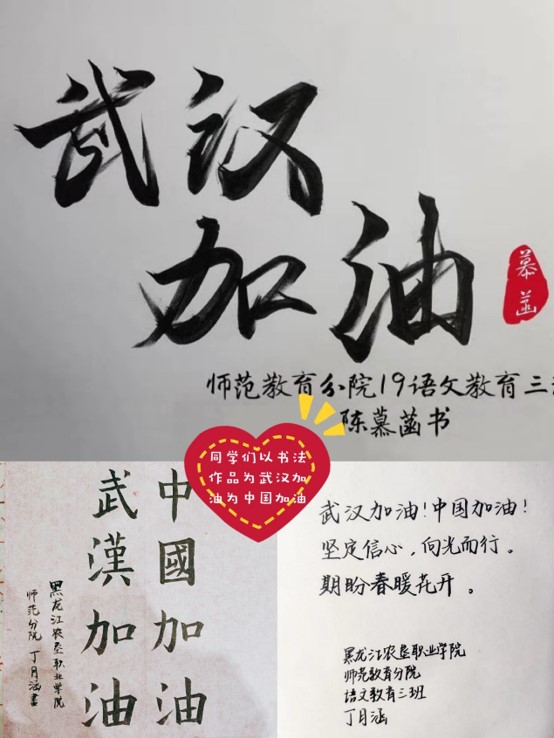 武汉
加油
慕菡
师范教育分院19语文教育三
陈慕菡书
同学们以书法
作品为武汉加
油为中国加油
中國加油
武漢加油
黑龙江农垦职业学院
师范分院 丁月涵書
武汉加油！中国加油！
坚定信心，向光而行。
期盼春暖花开。
黑龙江农垦职业学院
师范教育分院
语文教育三班
丁月涵